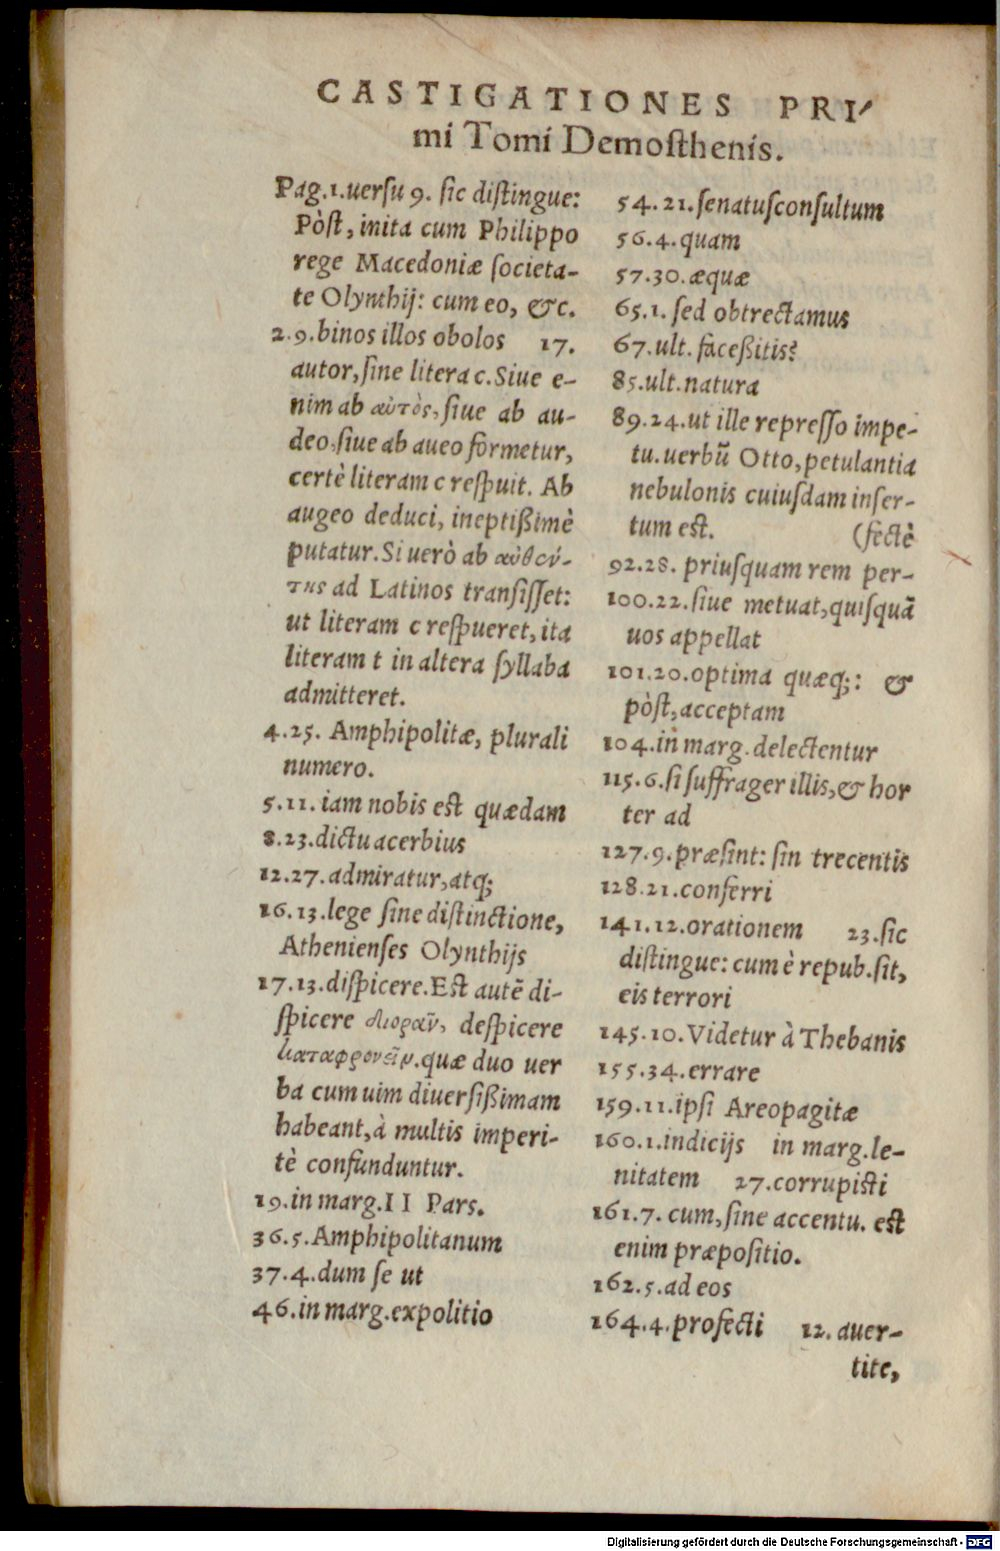 CASTIGATIONES PRI-
mi Tomi Demosthenis.
Pag.1.uersu 9. sic distingue:
Pòst, inita cum Philippo
rege Macedoniæ societa-
te Olynthij: cum eo, &c.
2.9.binos illos obolos 17.
autor, sine litera c. Siue e-
nim ab αὐτὸς, siue ab au-
deo, siue ab aueo formetur,
certè literam c respuit. Ab
augeo deduci, ineptißimè
putatur. Si uerò ab αὐθέν-
της ad Latinos transisset:
ut literam c respueret, ita
literam t in altera syllaba
admitteret.
4.25. Amphipolitæ, plurali
numero.
5.11. iam nobis est quædam
8.23. dictu acerbius
12.27. admiratur, atq;
16.13. lege sine distinctione,
Athenienses Olynthijs
17.13. dispicere. Est autē di-
spicere διορᾶν, despicere
καταφρονεῖν. quæ duo uer
ba cum uim diuersißimam
habeant, à multis imperi-
tè confunduntur.
19. in marg. II Pars.
36.5. Amphipolitanum
37.4. dum se ut
46. in marg. expolitio
54.21. senatusconsultum
56.4. quam
57.30. æquæ
65.1. sed obtrectamus
67. ult. faceßitis?
85. ult. natura
89.24. ut ille represso impe-
tu. uerbū Otto, petulantia
nebulonis cuiusdam inser-
tum est. (fectè
92.28. priusquam rem per-
100.22. siue metuat, quisquā
uos appellat
101.20. optima quæq;: &
pòst, acceptam
104. in marg. delectentur
115.6. si suffrager illis, & hor
ter ad
127.9. præsint: sin trecentis
128.21. conferri
141.12. orationem 23. sic
distingue: cum è repub. sit,
eis terrori
145.10. Videtur à Thebanis
155.34. errare
159.11. ipsi Areopagitæ
160.1. indicijs in marg. le-
nitatem 27. corrupisti
161.7. cum, sine accentu. est
enim præpositio.
162.5. ad eos
164.4. profecti 12. auer-
tite,
Digitalisierung gefördert durch die Deutsche Forschungsgemeinschaft - DFG